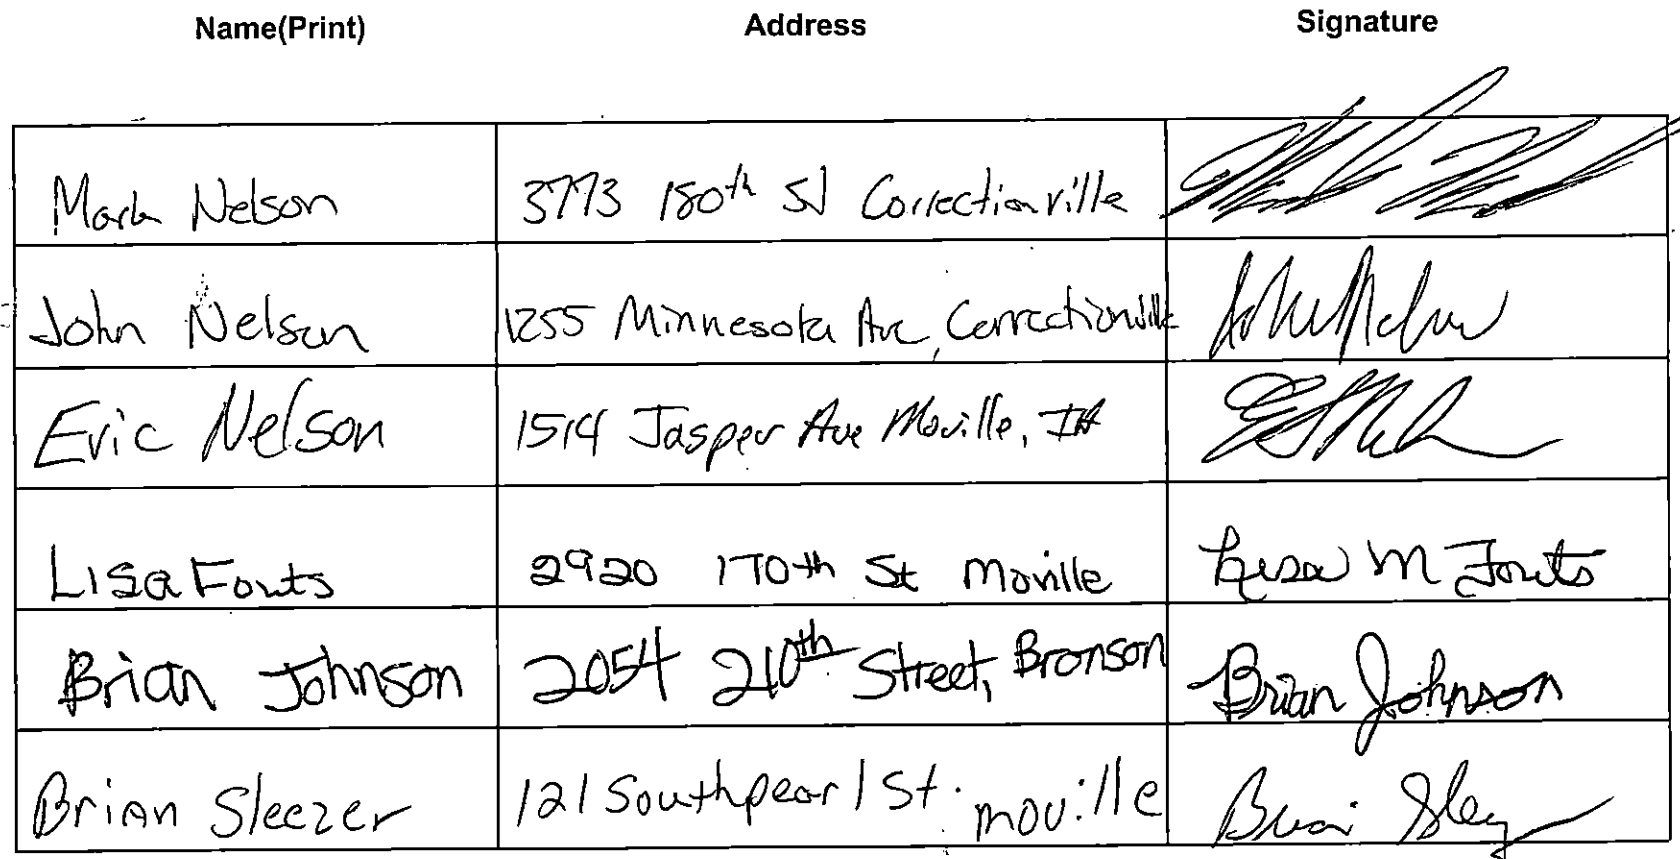 Name(Print) Address Signature
Mark Nelson 3773 180th St Correctionville
John Nelson 1255 Minnesota Ave, Correctionville John Nelson
Eric Nelson 1514 Jasper Ave Moville, IA
Lisa Fouts 2920 170th St Moville Lisa M Fouts
Brian Johnson 2054 210th Street, Bronson Brian Johnson
Brian Sleezer 121 South pearl St. moville Brian